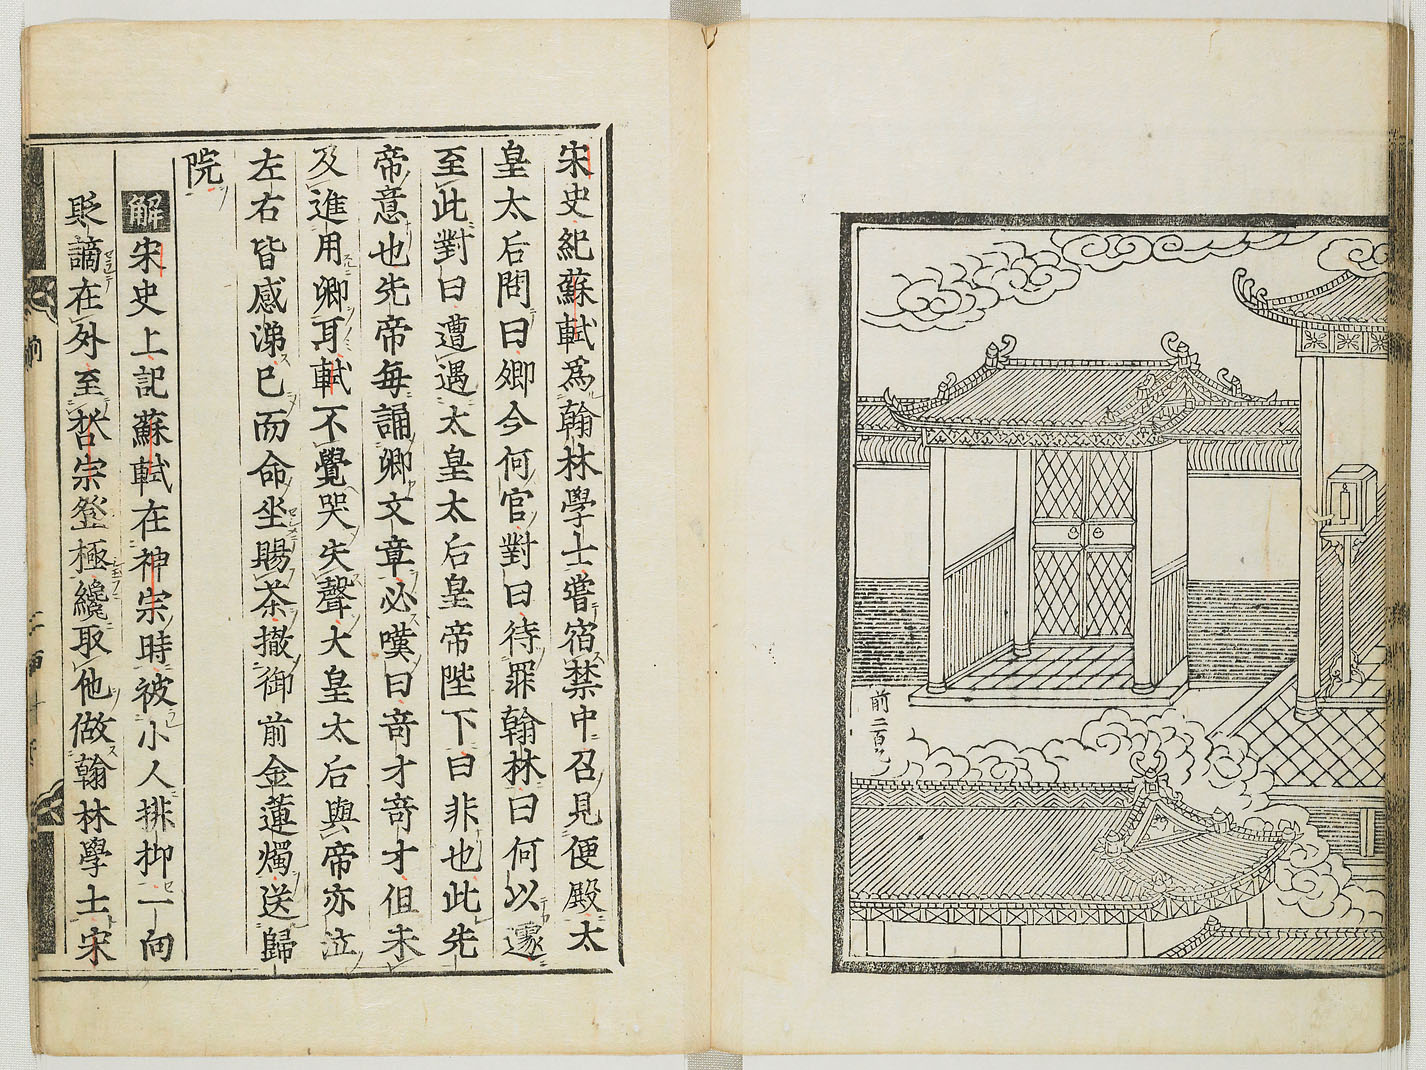 前二百
宋史紀蘇軾爲翰林學士嘗宿禁中召見便殿太
皇太后問曰卿今何官對曰待罪翰林曰何以遽
至此對曰遭遇太皇太后皇帝陛下曰非也此先
帝意也先帝每誦卿文章必嘆曰竒才竒才但未
及進用卿耳軾不覺哭失聲太皇太后與帝亦泣
左右皆感涕已而命坐賜茶撤御前金蓮燭送歸
院
解宋史上記蘇軾在神宗時被小人排抑一向
貶謫在外至哲宗登極纔取他做翰林學士宋